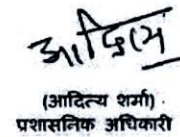 आदित्य
(आदित्य शर्मा)
प्रशासनिक अधिकारी